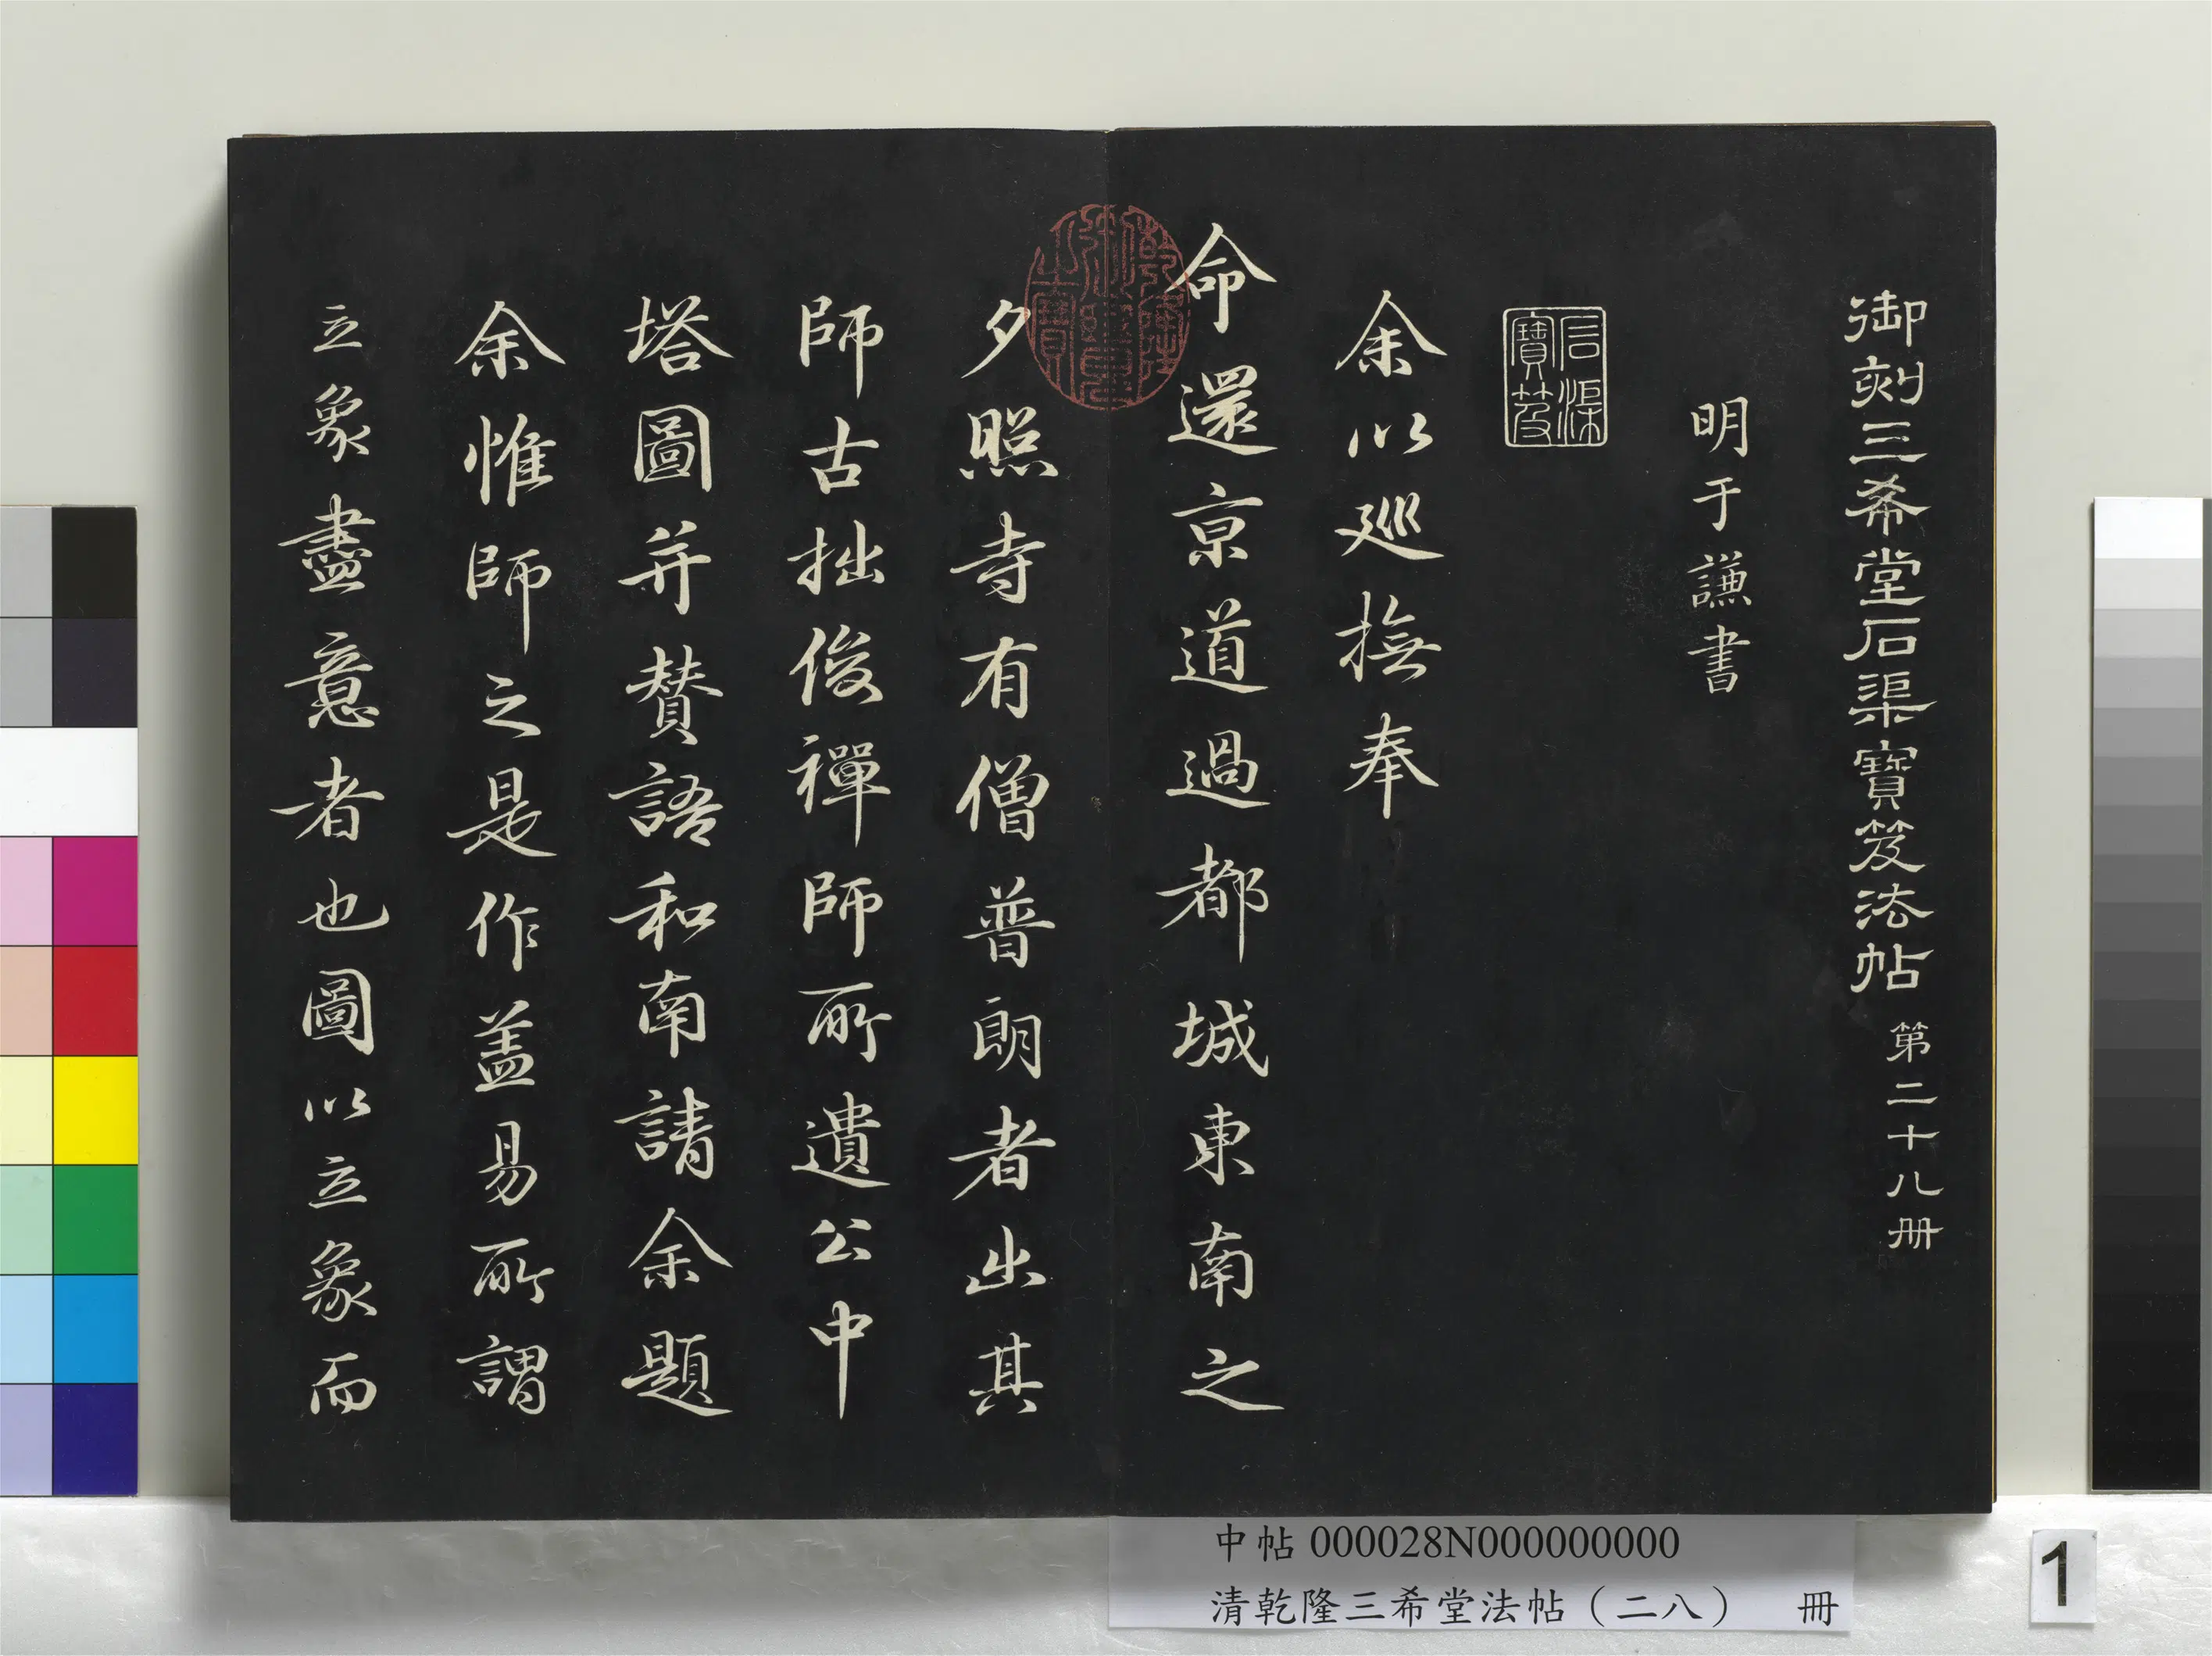 御刻三希堂石渠寶笈法帖 第二十八册
明于謙書
石渠
寶笈
余以廵撫奉
命還京道過都城東南之
夕照寺有僧普朗者出其
師古拙俊禪師所遺公中
塔圖并賛語和南請余題
余惟師之是作盖易所謂
立象盡意者也圖以立象而
中帖 000028N000000000
清乾隆三希堂法帖（二八） 冊
1